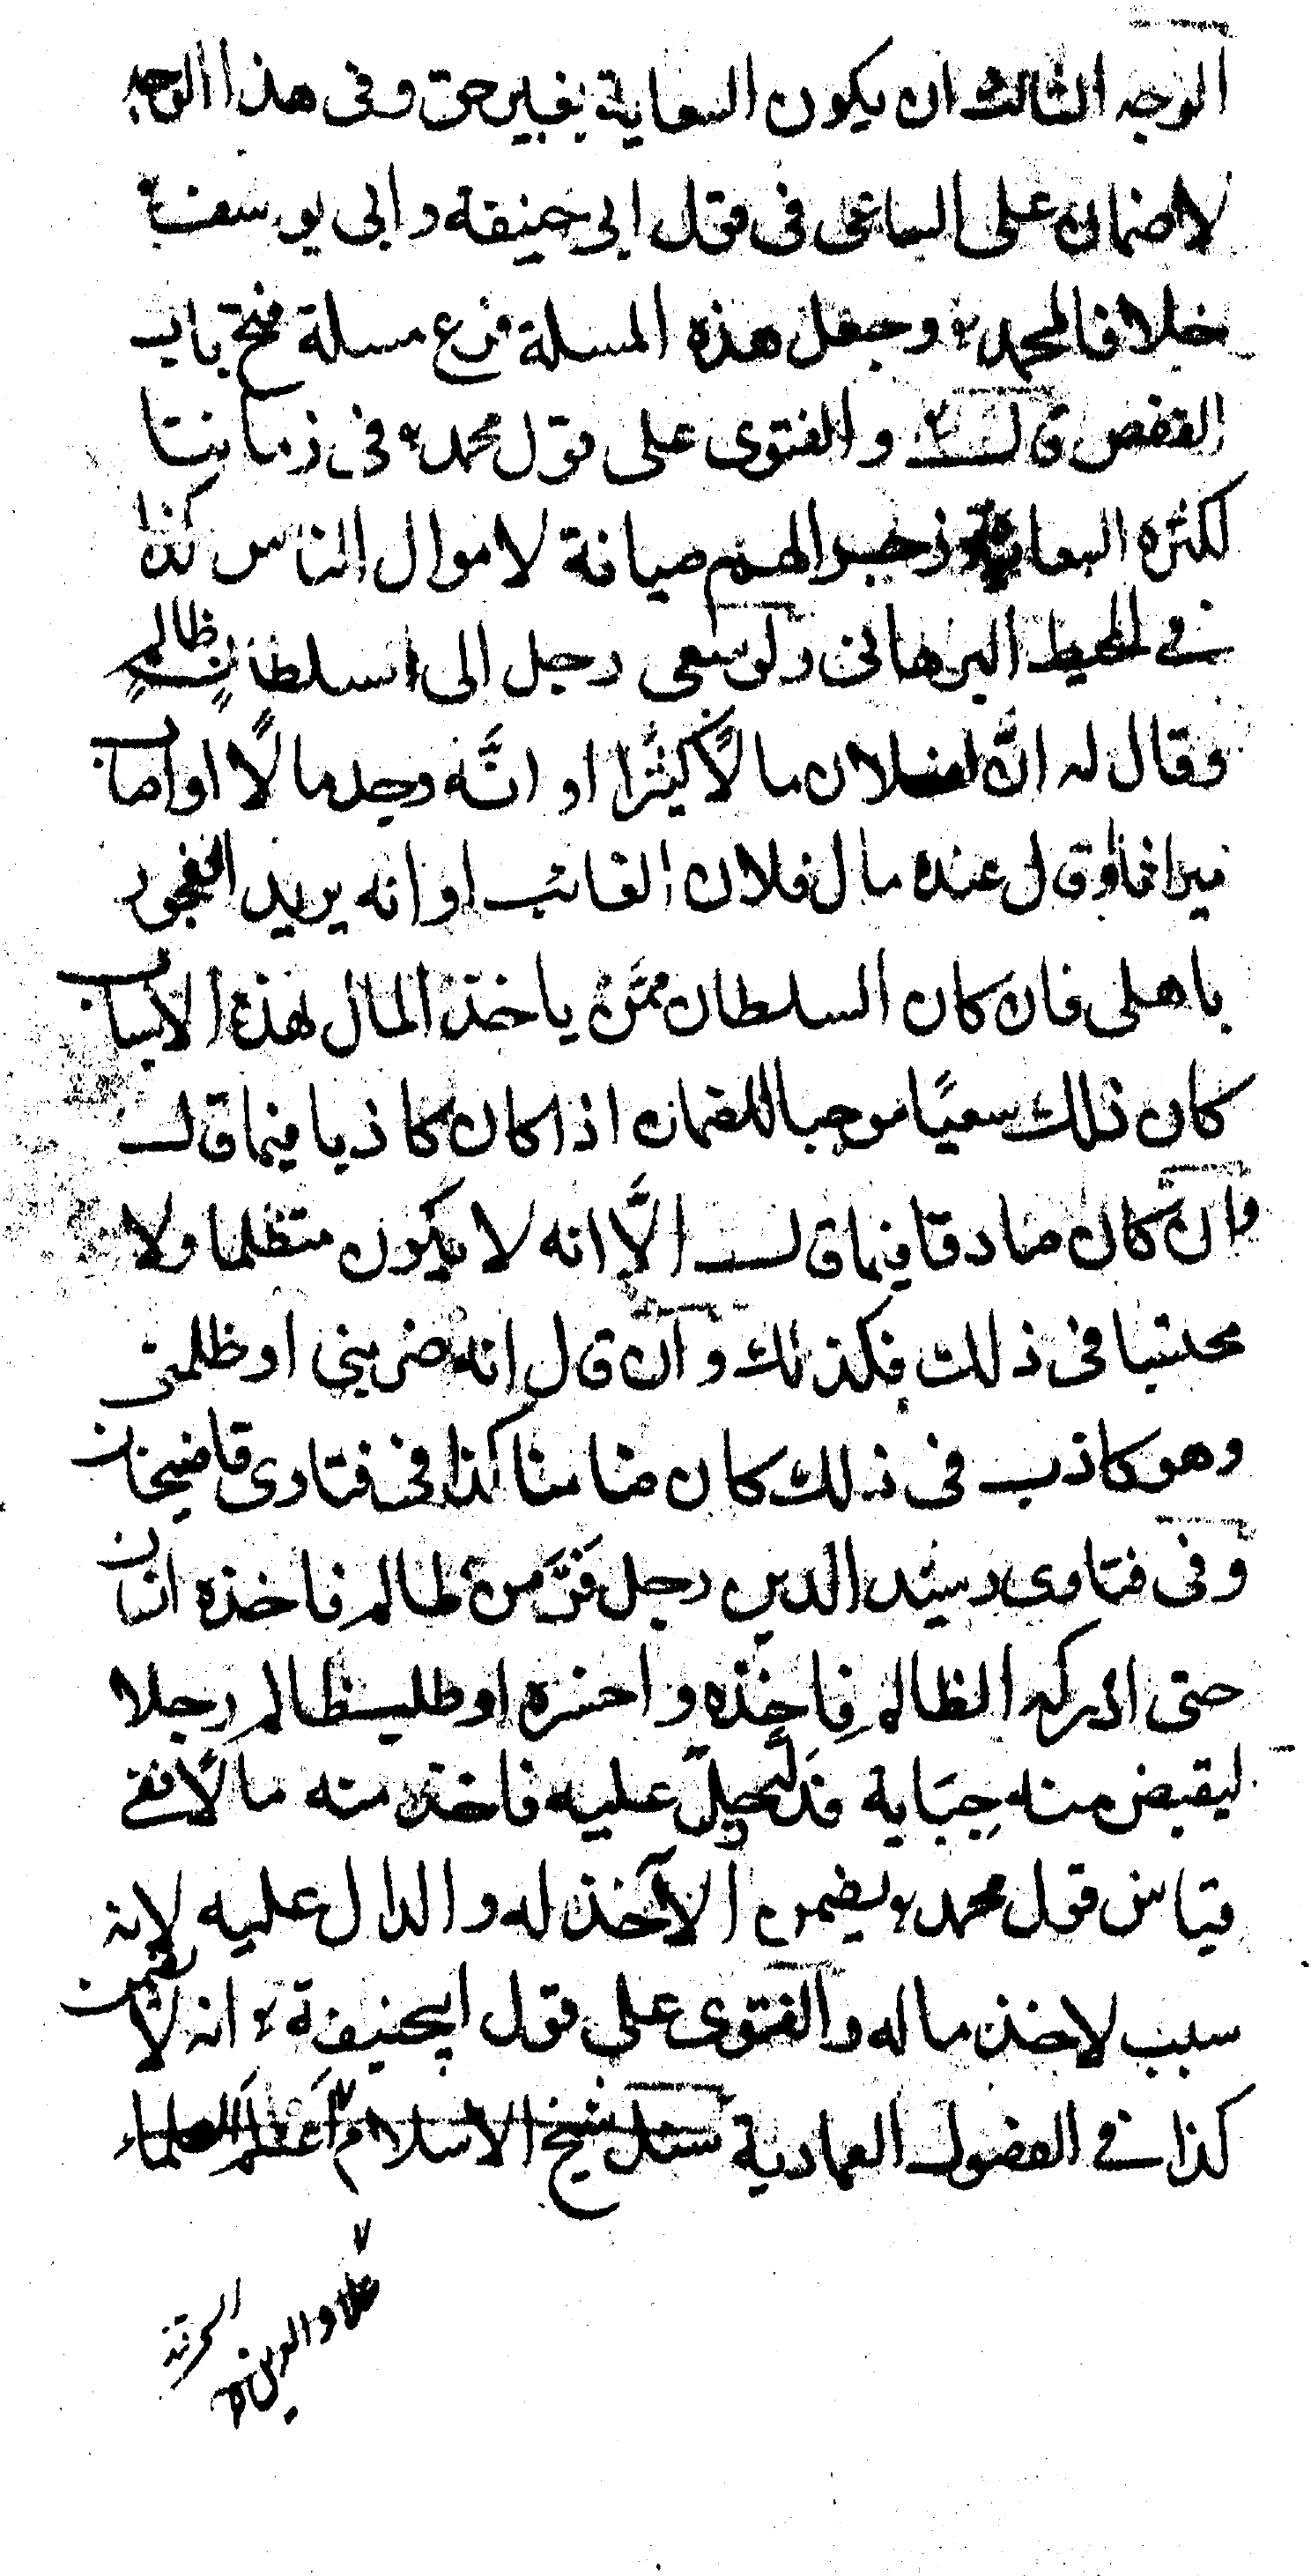 الوجه الثالث ان يكون السعاية بغير حق وفى هذا الوجه
لا ضمان على الساعى فى قول ابى حنيفة وابى يوسف
خلافا لمحمد وجعل هذه المسلة فرع مسلة فتح باب
القفص قال والفتوى على قول محمد فى زماننا
لكثره السعاية زجرا لهم صيانة لاموال الناس كذا
فى المحيط البرهانى ولو سعى رجل الى سلطان ظالم
وقال له انّ لفلان مالًا كثيرًا او انّه وجد مالًا او اصاب
ميراثا او قال عنده مال فلان الغائب او انه يريد الفجور
باهلى فان كان السلطان ممّن ياخذ المال لهذه الاسباب
كان ذلك سعيًا موجبا للضمان اذا كان كاذبا فيما قال
وان كان صادقا فيما قال الّا انه لا يكون متظلما ولا
محتسبا فى ذلك فكذلك وان قال انه ضربنى او ظلمنى
وهو كاذب فى ذلك كان ضامنا كذا فى فتاوى قاضيخان
وفى فتاوى رشيد الدين رجل فرّ من ظالم فاخذه انسان
حتى ادركه الظالم فاخذه واخسره او طلب ظالم رجلا
ليقبض منه جِبَاية فدلّ رجل عليه فاخذ منه مالًا ففى
قياس قول محمد يضمن الآخذ له والدال عليه لانه
سبب لاخذ ماله والفتوى على قول ابيحنيفة انه لا يضمن
كذا فى الفصول العمادية سئل شيخ الاسلام اعظم العلماء
علاو الدين